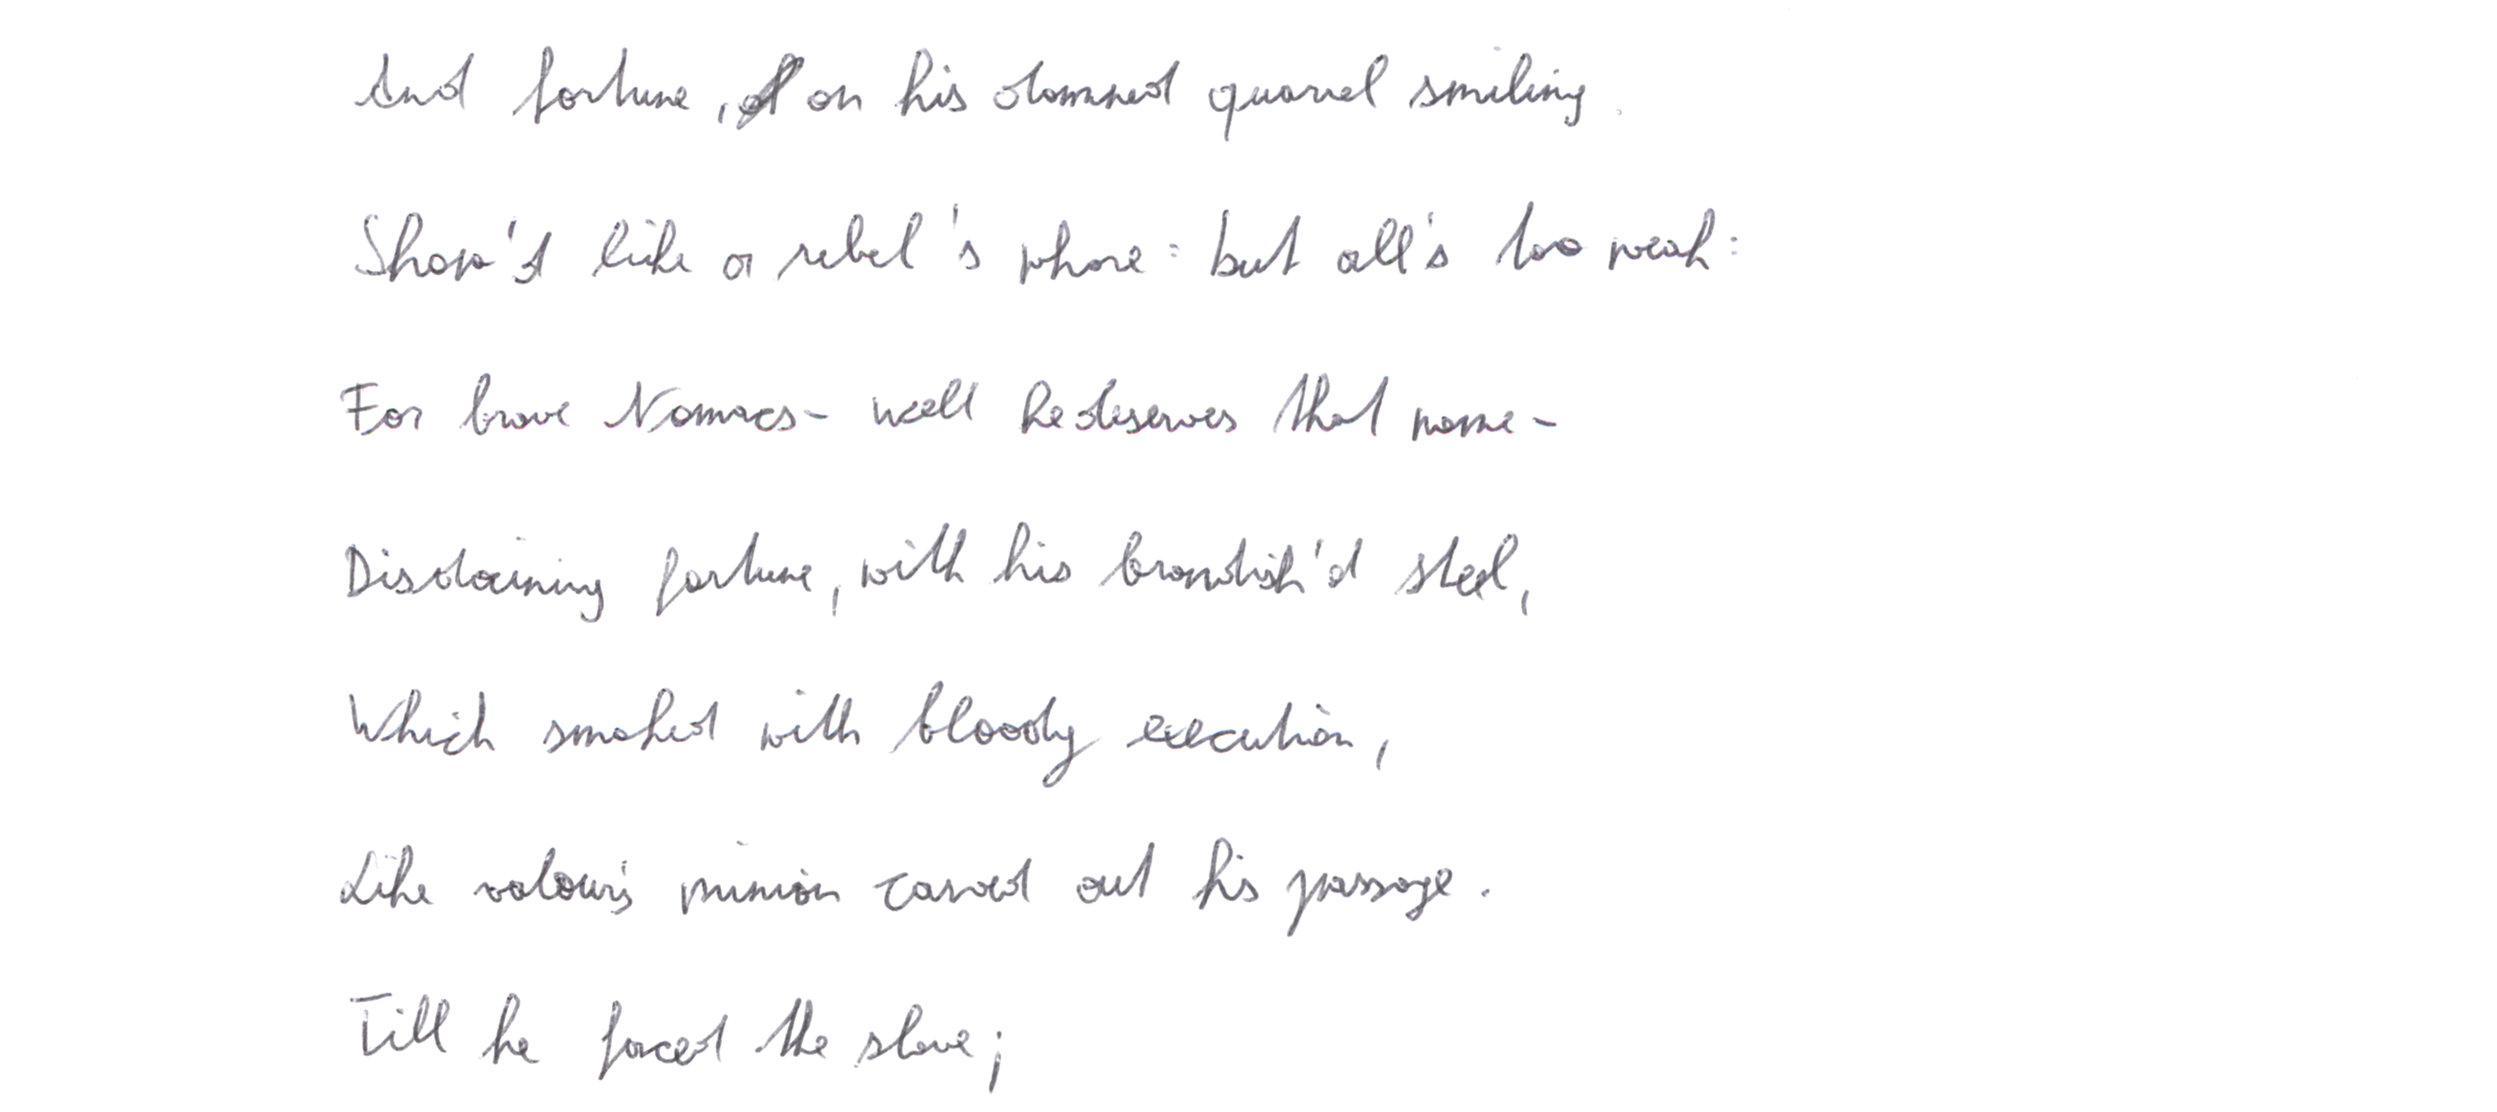 And fortune, on his damned quarrel smiling.
Show'd like a rebel's whore: but all's too weak:
For brave Nomacs- well he deserves that name-
Disdaining fortune, with his brandish'd steel,
Which smoked with bloody execution,
Like valour's minion carved out his passage.
Till he forced the slave;